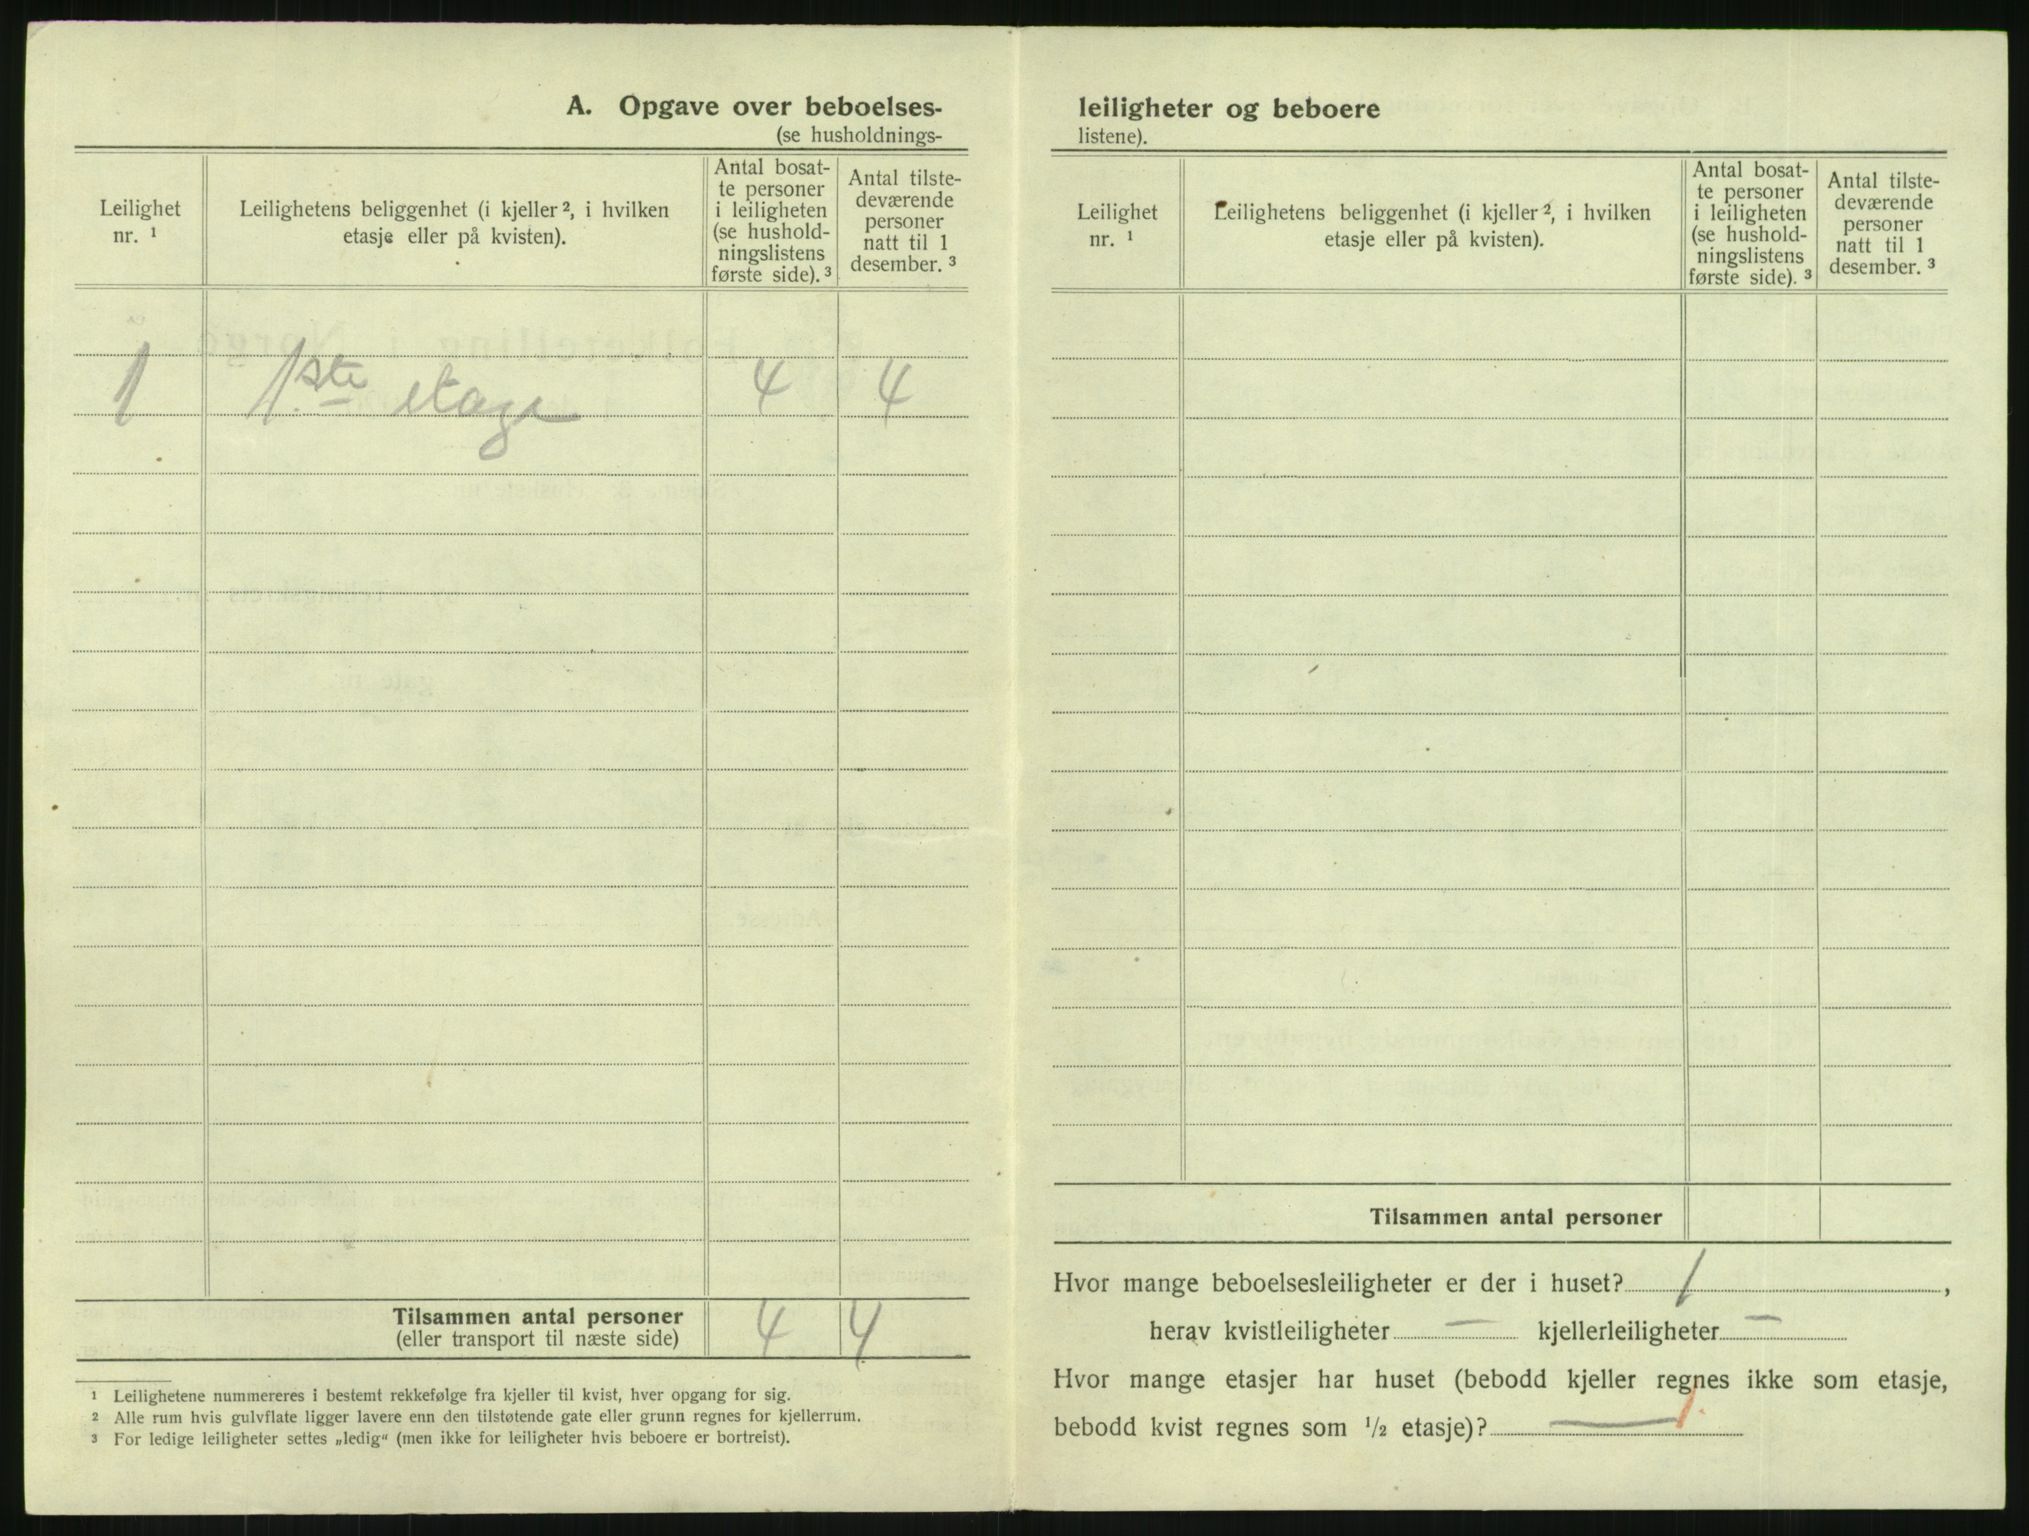 A. Opgave over beboelses-
(se husholdnings-
Leilighet
nr. ¹
Leilighetens beliggenhet (i kjeller ², i hvilken
etasje eller på kvisten).
Antal bosat-
te personer
i leiligheten
(se hushold-
ningslistens
første side). ³
Antal tilste-
deværende
personer
natt til 1
desember. ³
1 1.ste etage 4 4
Tilsammen antal personer 4 4
(eller transport til næste side)
¹ Leilighetene nummereres i bestemt rekkefølge fra kjeller til kvist, hver opgang for sig.
² Alle rum hvis gulvflate ligger lavere enn den tilstøtende gate eller grunn regnes for kjellerrum.
³ For ledige leiligheter settes „ledig“ (men ikke for leiligheter hvis beboere er bortreist).
leiligheter og beboere
listene).
Leilighet
nr. ¹
Leilighetens beliggenhet (i kjeller ², i hvilken
etasje eller på kvisten).
Antal bosat-
te personer
i leiligheten
(se hushold-
ningslistens
første side). ³
Antal tilste-
deværende
personer
natt til 1
desember. ³
Tilsammen antal personer
Hvor mange beboelsesleiligheter er der i huset? 1,
herav kvistleiligheter — kjellerleiligheter —
Hvor mange etasjer har huset (bebodd kjeller regnes ikke som etasje,
bebodd kvist regnes som ½ etasje)? — 1.